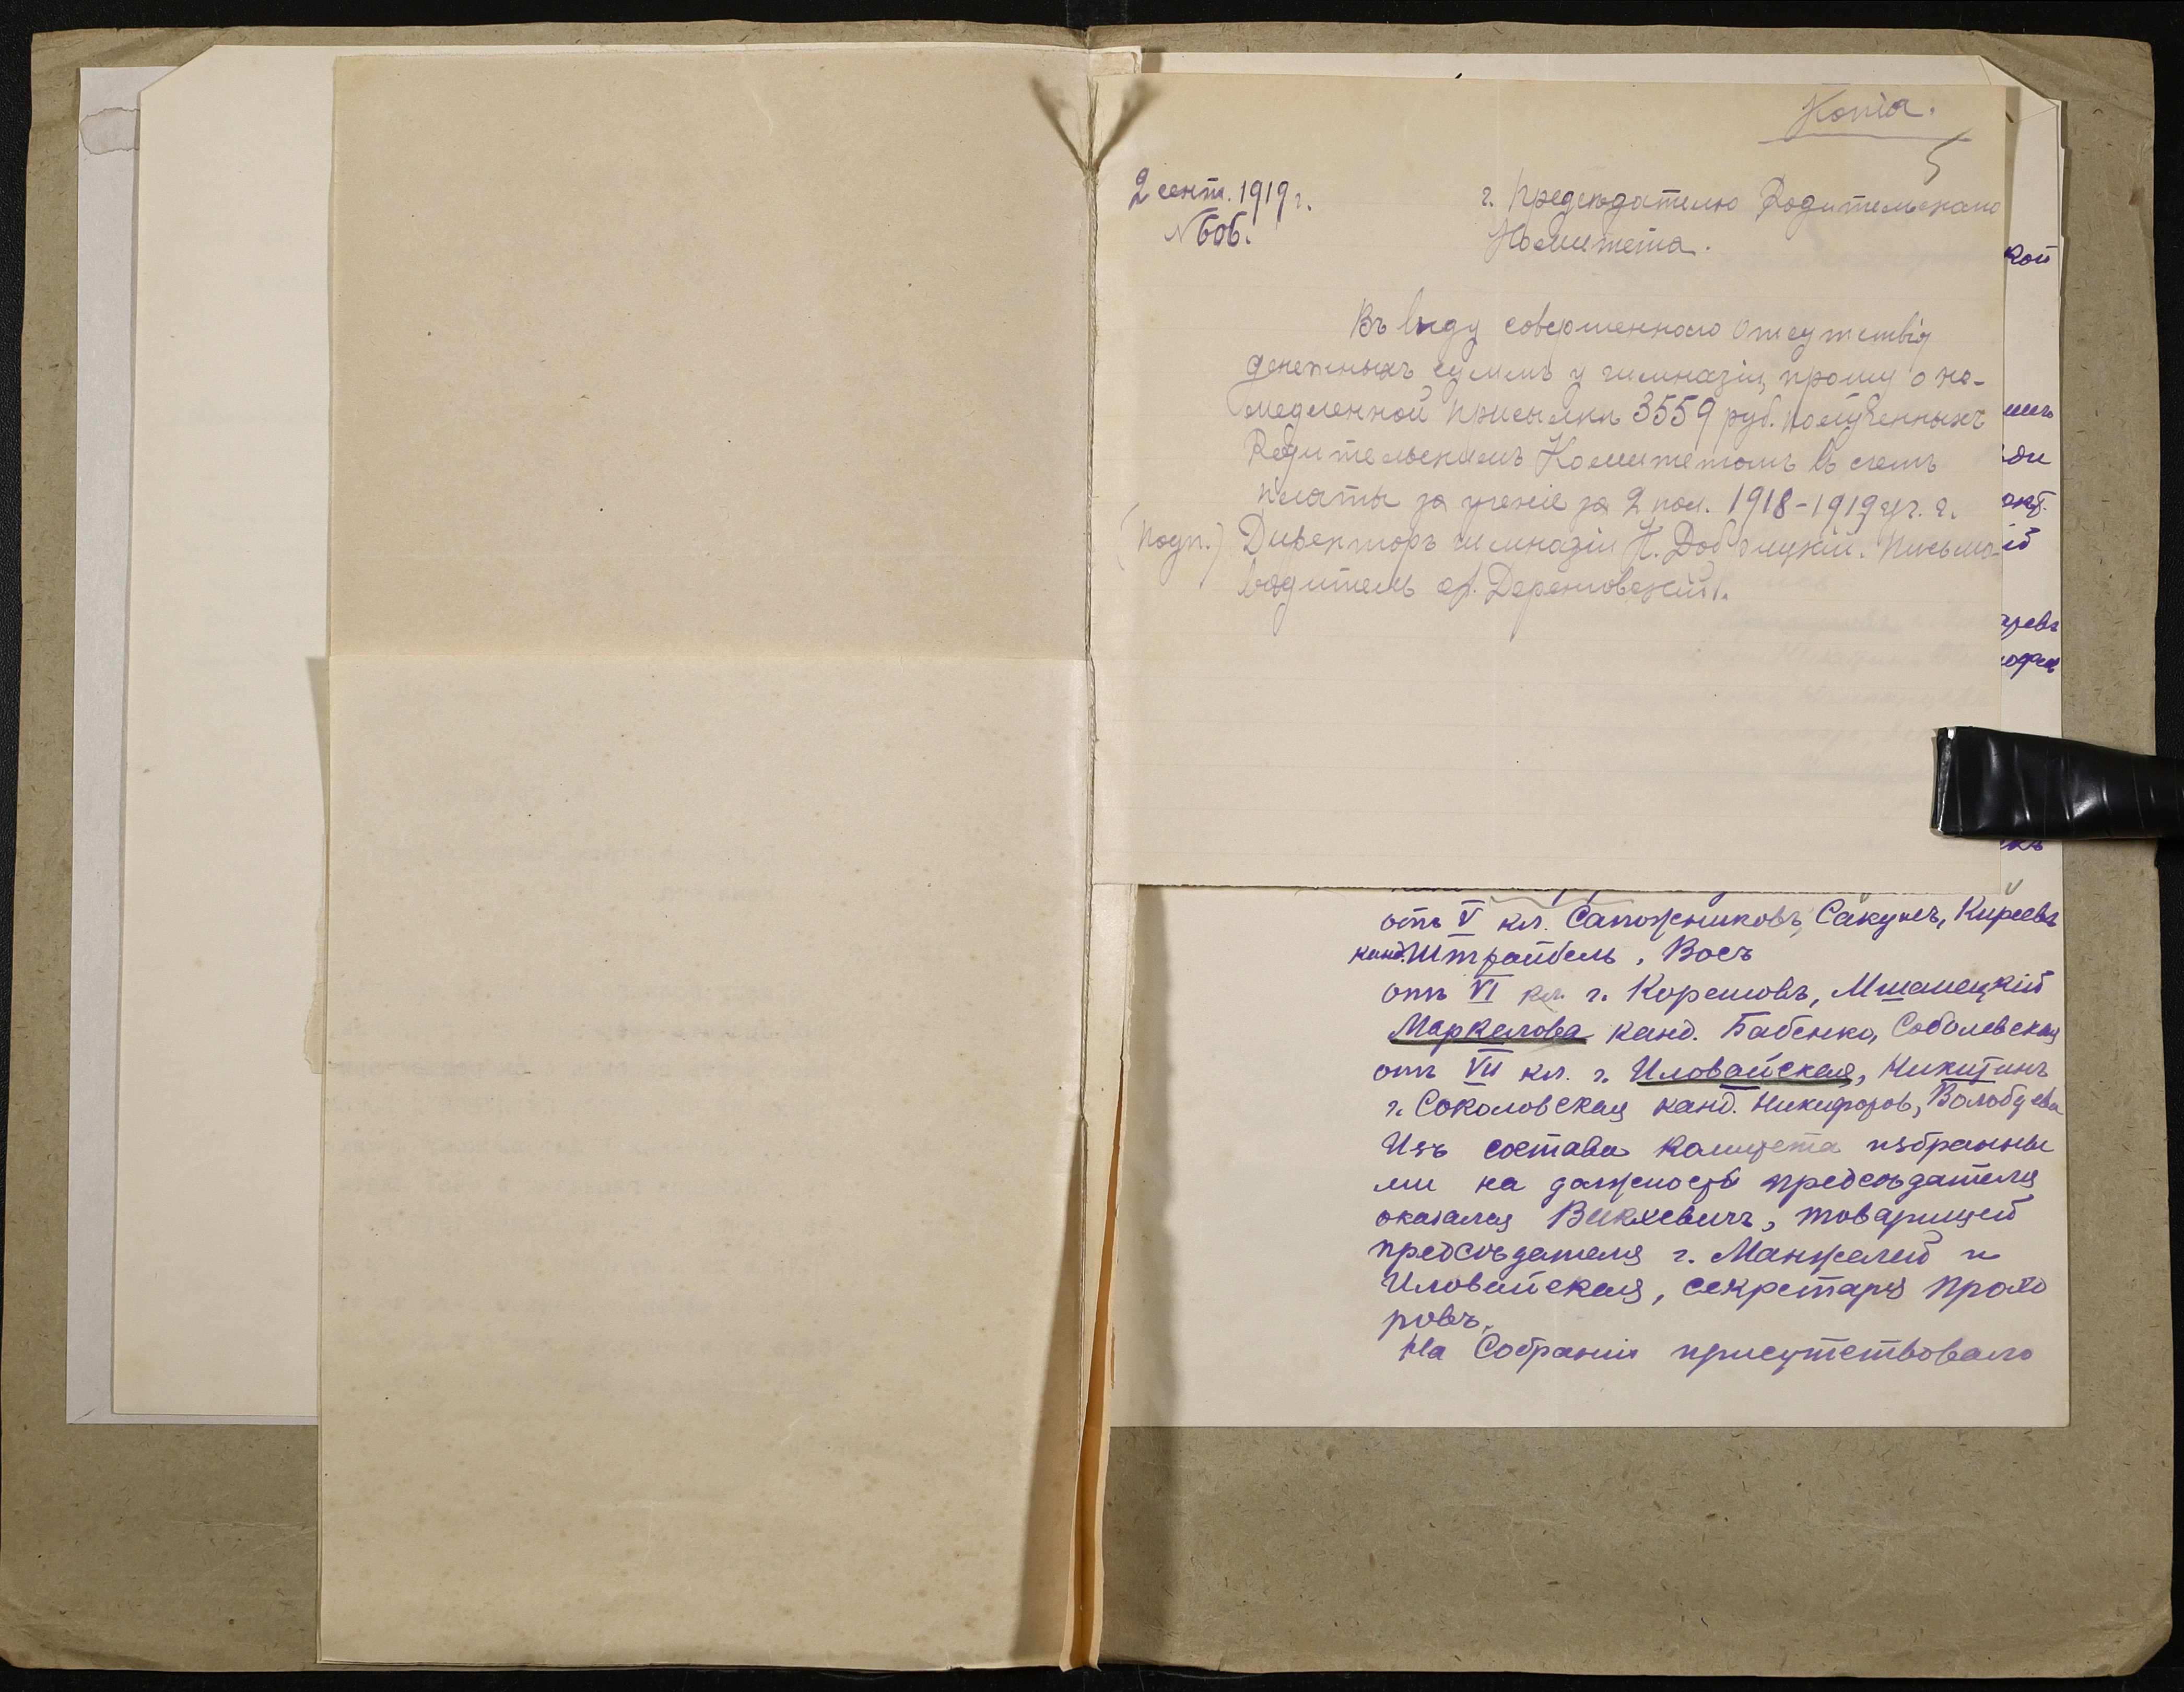 Копія.
5
2 сент. 1919 г.
№ 606.
г. Предсѣдателю Родительскаго
Комитета.
Въ виду совершеннаго отсутствія
денежныхъ суммъ у гимназіи, прошу о не-
медленной присылкѣ 3559 руб. полученныхъ
Родительскимъ Комитетомъ въ счетъ
платы за ученіе за 2 пол. 1918-1919 уч. г.
(подп.) Директоръ гимназіи Письмо-
водитель
кой
ои
ій
отъ V кл. Сапожниковъ, Сакунъ, Киреевъ
канд. Штрайбель, Восъ
отъ VI кл. г. Корешовъ, Мшанецкій
Маркелова канд. Бабенко, Соболевская
отъ VII кл. г. Иловайская, Никитинъ
г. Соколовская канд. Никифоров, Волобуева
Изъ состава комитета избранны
ми на должность предсѣдателя
оказался товарищей
предсѣдателя г. Манжелей и
Иловайская, секретаря Прохо
ровъ.
На Собраніи присутствовало